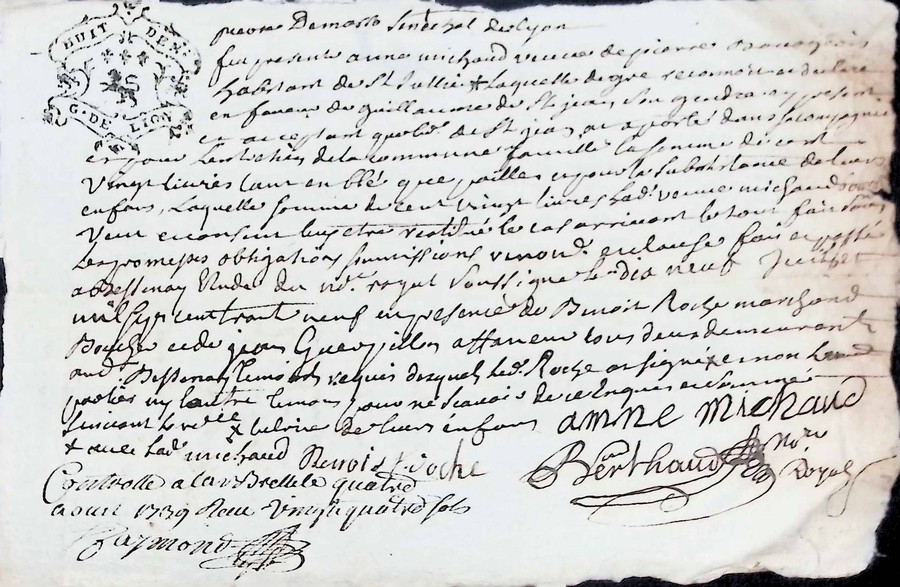 HUIT DEN.
G. DE LION
pierre Demasso Senechal de Lyon
fut presente anne michaud veuve de pierre
habitant de St Jullie + Laquelle de gre reconnoit et declare
en faveur de guillaume de St jean Son gendre cy present
et acceptant que led. de St jean a aporté dans sa compagnie
et pour Lentretien de la commune famille la somme de cent
vingt livres tant en blé que pailles et pour la Subsistance de leurs
enfans, Laquelle somme de cent vingt livres lad. veuve michaud
veut et consent luy etre restitué le cas arrivant le tout fait sous
Les promesses obligations summissions renond. et clause fait et passé
a Bessenay Etude du no.re royal Soussigné Le dix neuf Juillet
mil sept cent trent neuf en presence de Benoit Roche marchand
Boucher et de jean Guerpillon affaneur tous deux demeurants
aud. Bessenay temoins requis desquels led. Roche a signé x et non
parties ny lautre temoin pour ne scavoir de ce Enquis et Sommés
Suivant
x et lun de leurs enfans anne Michaud
+ avec lad. michaud Benoit Roche
Berthaud no.re Royal
Controllé a larbrelle le quatre
aout 1739 Recu vingt quatre sols
Raymond